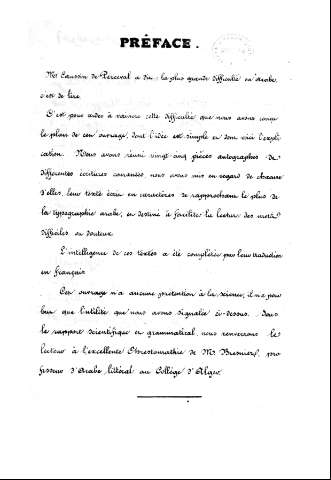 PRÉFACE.
Mr Caussin de Perceval a dit : la plus grande difficulté en arabe,
c'est de lire.
C'est pour aider à vaincre cette difficulté que nous avons conçu
le plan de cet ouvrage, dont l'idée est simple et dont voici l'expli
cation. Nous avons réuni vingt cinq pièces autographes de
différentes écritures courantes nous avons mis en regard de chacune
d'elles, leur texte écrit en caractères se rapprochant le plus de
la typographie arabe, et destiné à faciliter la lecture des mots
difficiles ou douteux.
L'intelligence de ces textes a été complétée par leur traduction
en français
Cet ouvrage n'a aucune prétention à la science, il n'a pour
but que l'utilité que nous avons signalée ci-dessus. Sous
le rapport scientifique et grammatical, nous renverrons le
lecteur à l'excellente Chrestomathie de Mr. Bresnier, pro
fesseur d'Arabe littéral au Collège d'Alger.